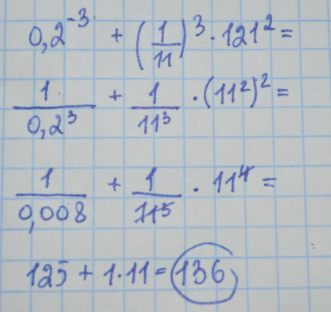 0,2⁻³ + (1/11)³ · 121² =
1/0,2³ + 1/11³ · (11²)² =
1/0,008 + 1/11³ · 11⁴ =
125 + 1 · 11 = 136